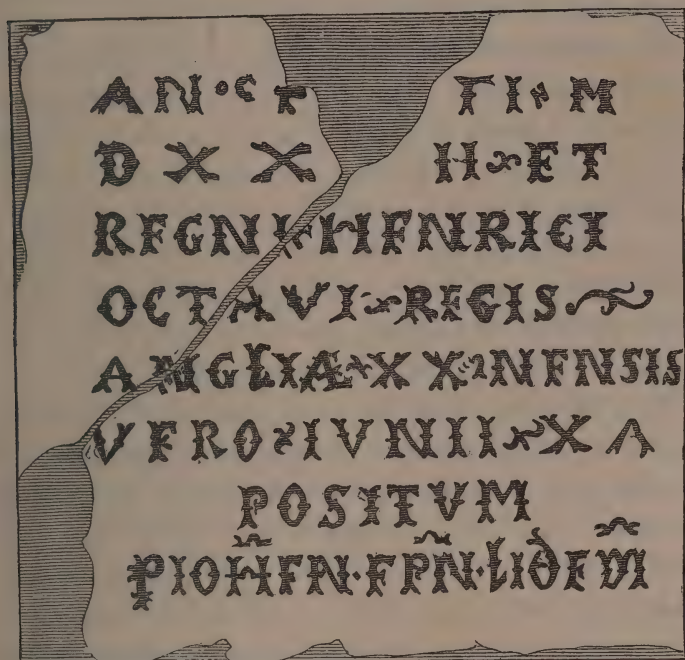 AN·º C TI M
D X X II ET
REGNI HENRICI
OCTAVI REGIS
ANGLIÆ X X MENSIS
VERO IVNII X Λ
POSITVM
ꝑIOHEN·EPN·LIDEM